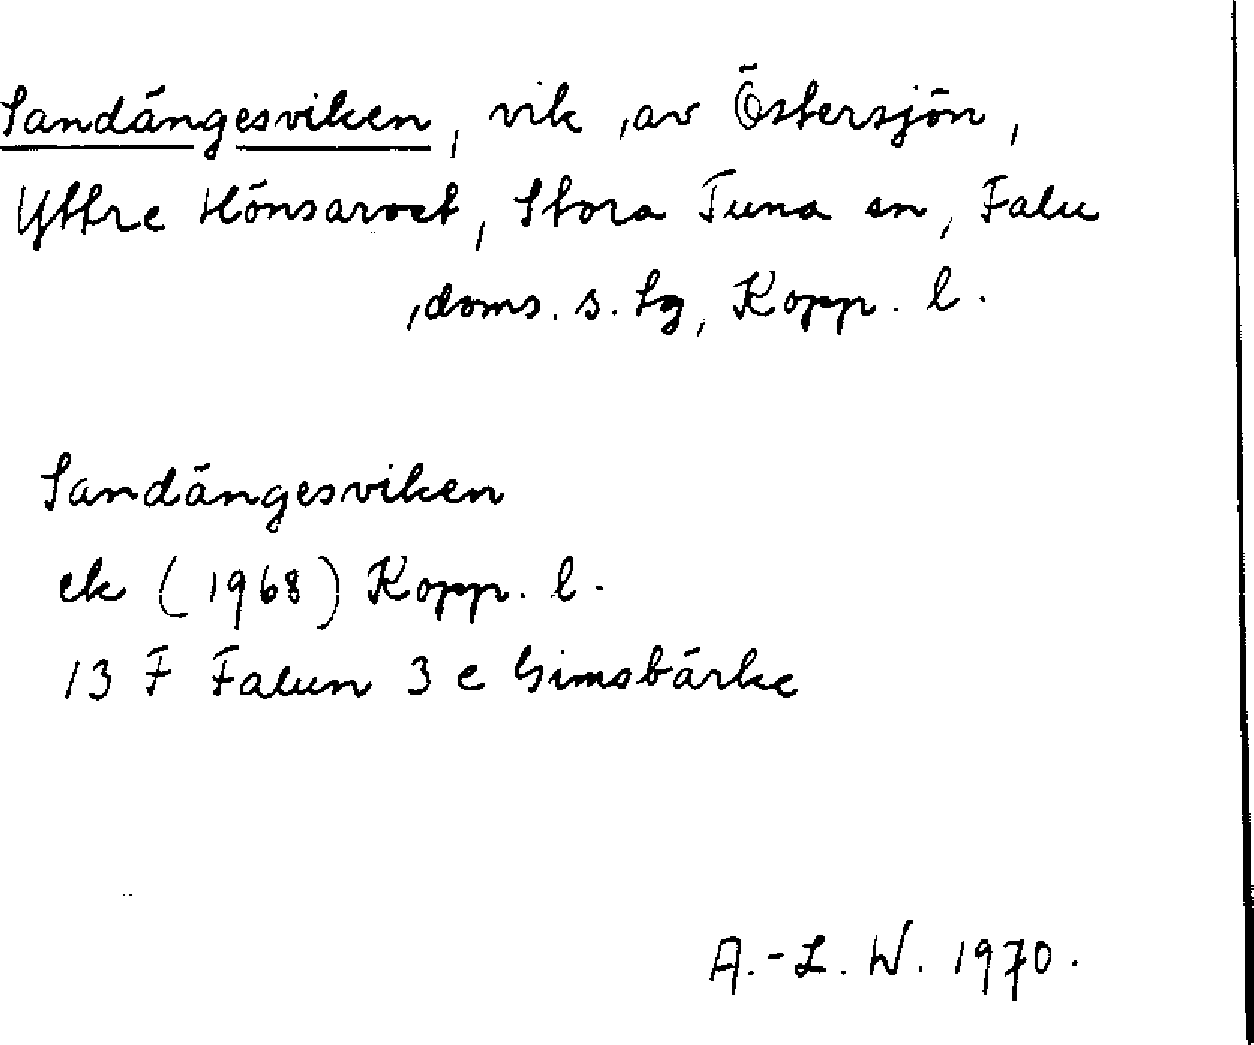 Sandängesviken, vik av Östersjön,
Yttre Hönsarvet, Stora Tuna sn, Falu
doms. s. lg, Kopp. l.
Sandängesviken
ek (1968) Kopp. l.
13 F Falun 3 e Gimsbärke
A.-L. W. 1970.